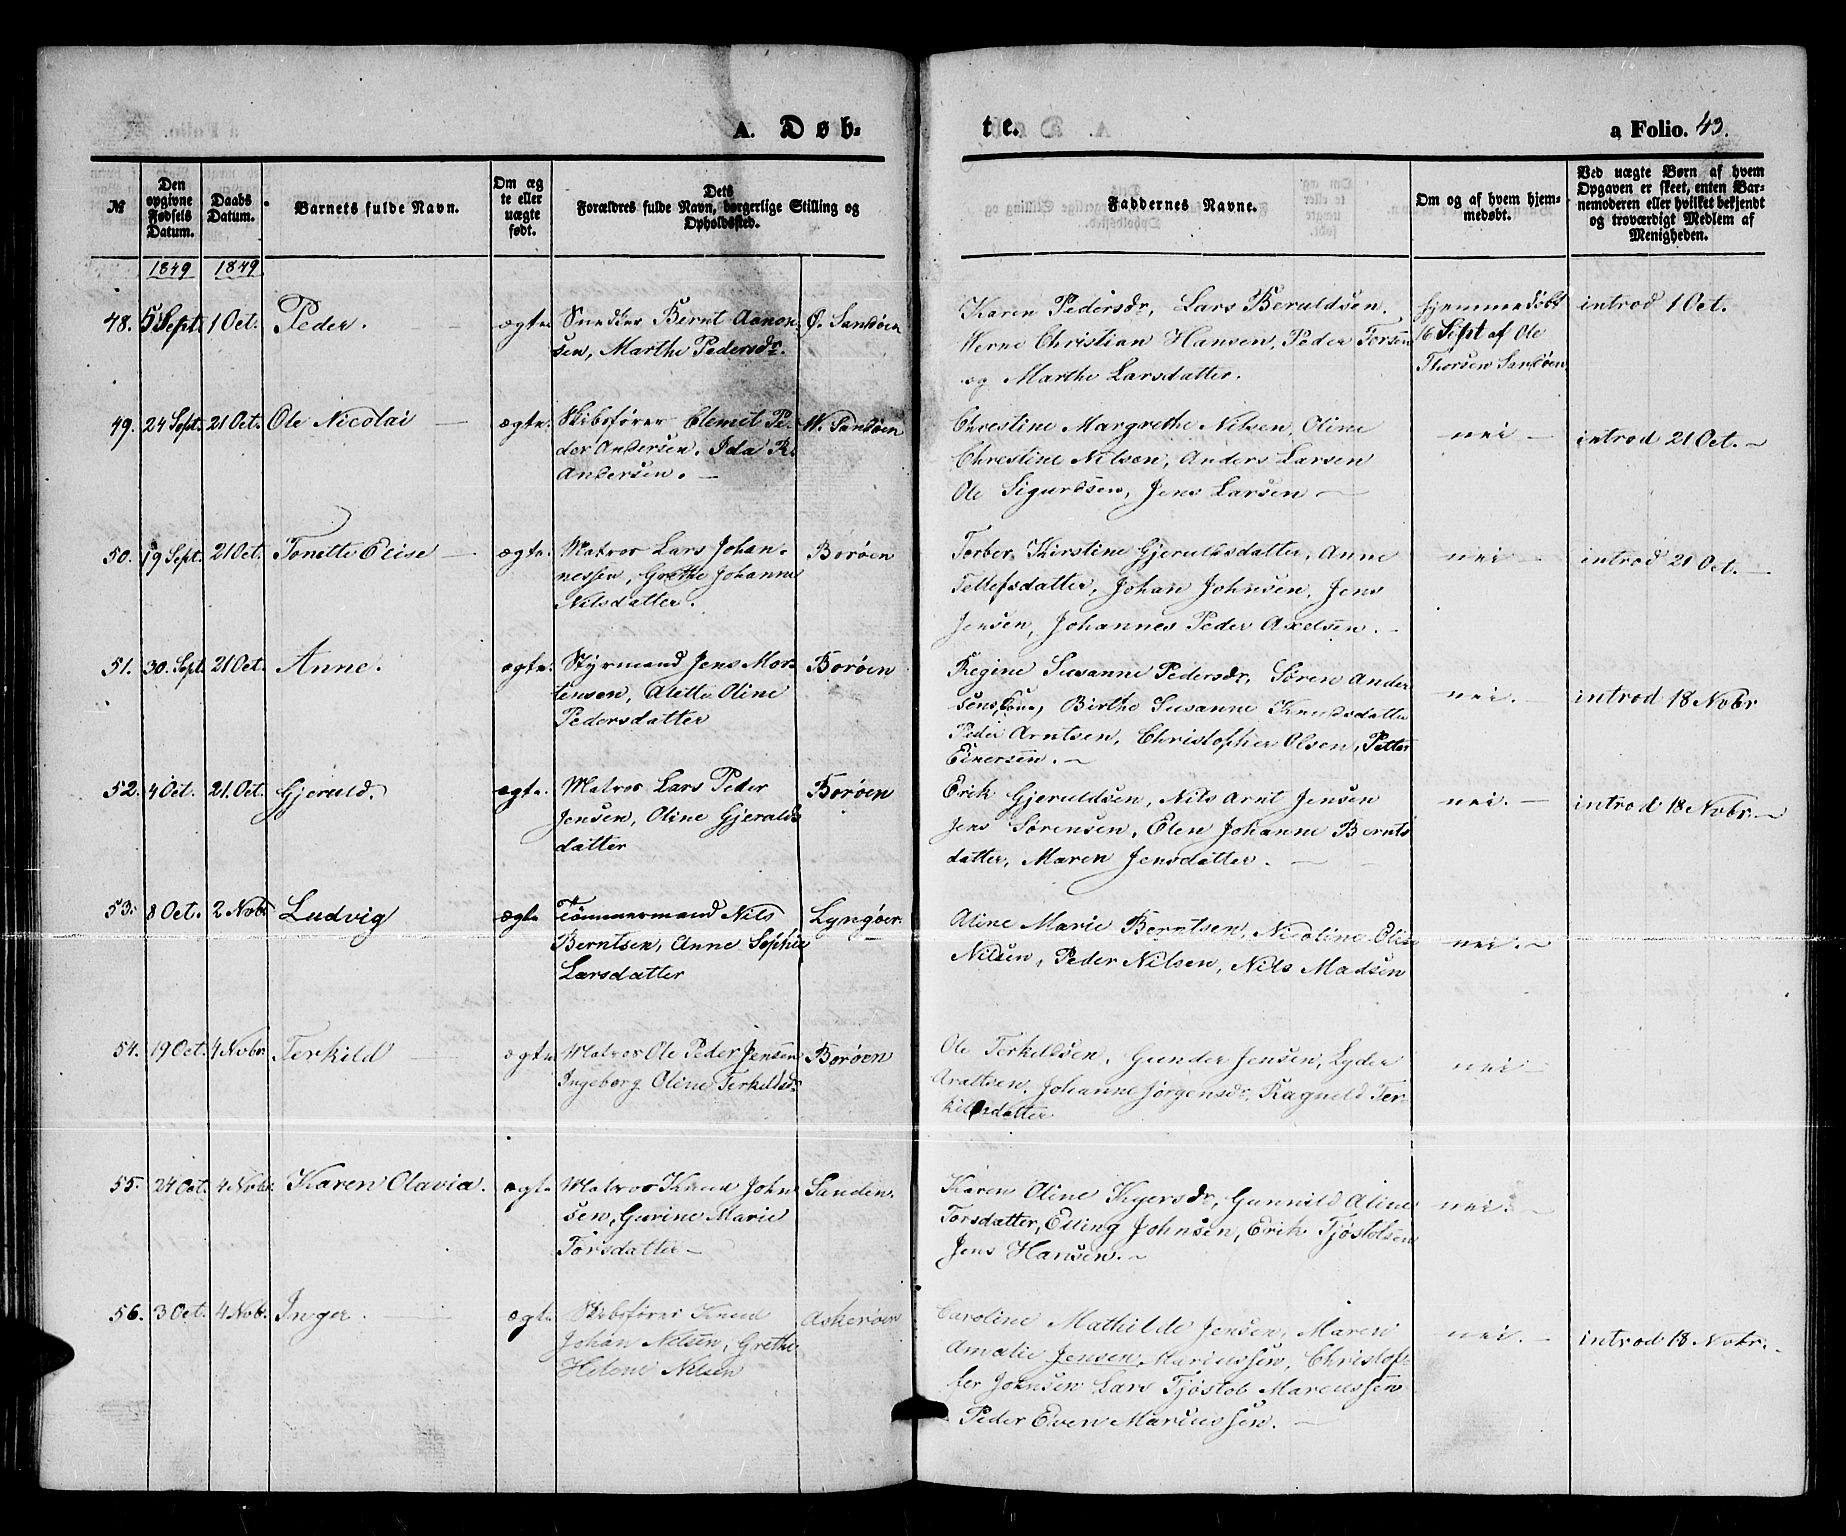 A. Døb-
te.
a Folio. 43.
№
Den opgivne Fødsels Datum.
Daabs Datum.
Barnets fulde Navn.
Om ægte eller uægte født.
Dets Forældres fulde Navn, borgerlige Stilling og Opholdssted.
Faddernes Navne.
Om og af hvem hjemmedøbt.
Ved uægte Børn af hvem Opgaven er skeet, enten Barnemoderen eller hvilket bekjendt og troværdigt Medlem af Menigheden.
1849 1849
48. 5 Sept. 1 Oct. Peder. ægte Snedker Bernt Aanon- Ø. Sandøen
sen, Marthe Pedersdr.
Karen Pedersdr, Lars Beruldsen.
Werne Christian Hansen, Peder Torsen
og Marthe Larsdatter.
hjemmedøbt
16 Sept af Ole
Thorsen Sandøen
introd 1 Oct.
49. 24 Sept. 21 Oct. Ole Nicolai ægte. Skibsfører Clemet Pe- W. Sandøen
der Andersen. Ida R.
Andersen.
Chrestine Margrethe Nilsen, Oline
Chrestine Nilsen, Anders Larsen
Ole Sigurdsen, Jens Larsen
nei
introd 21 Oct.
50. 19 Sept. 21 Oct. Tonette Elise ægte. Matros Lars Johan- Borøen
nessen, Grethe Johanne
Nilsdatter.
Torber Kirstine Gjeruldsdatter, Anne
Tellefsdatter, Johan Johnsen, Jens
Jensen, Johannes Peder Axelsen.
nei
introd 21 Oct.
51. 30. Sept. 21 Oct. Anne. ægte. Styrmand Jens Mor- Borøen
tensen, Alette Oline
Pedersdatter
Regine Susanne Pedersdr, Søren Ander
sens, Birthe Susanne Knudsdatter
Peder Arntsen, Christopher Olsen, Petter
Einersen.
nei.
introd 18 Nobr
52. 4 Oct. 21. Oct. Gjeruld. ægte. Matros Lars Peder Borøen
Jensen, Oline Gjeralds
datter
Erik Gjeruldsen, Nils Arnt Jensen
Jens Sørensen, Elen Johanne Bernts
datter, Maren Jensdatter.
nei.
introd 18 Nobr.
53. 8 Oct. 2 Nobr Ludvig ægte Tömmermand Nils Lyngøer.
Berntsen, Anne Sophie
Larsdatter
Aline Marie Berntsen, Nicoline Oline
Nilsen, Peder Nilsen, Nils Madsen
nei.
54. 19 Oct. 4 Nobr. Terkild ægte Matros Ole Peder Jensen Borøen
Ingeborg Oline Terkildsdr.
Ole Terkildsen, Gunder Jensen, Lyder
Arntsen, Johanne Jørgensdr, Ragnild Ter-
kildsdatter
nei
55. 24 Oct. 4 Nobr. Karen Olavia. ægte Matros Knud John Sanden.
sen, Gurine Marie
Torsdatter
Karen Oline Kyersdr, Gunnild Aline
Torsdatter, Elling Johnsen, Erik Tjöstolsen
Jens Hansen.
nei.
56. 3 Oct. 4 Nobr. Inger. ægte Skibsfører Knud Askerøen
Johan Nelsen, Grethe
Helene Nelsen
Caroline Mathilde Jensen, Maren
Amalie Jensen, Marcussen, Christof-
fer Johnsen Lars Tjöstob Marcussen
Peder Even Marcussen.
nei.
introd 18 Nobr.